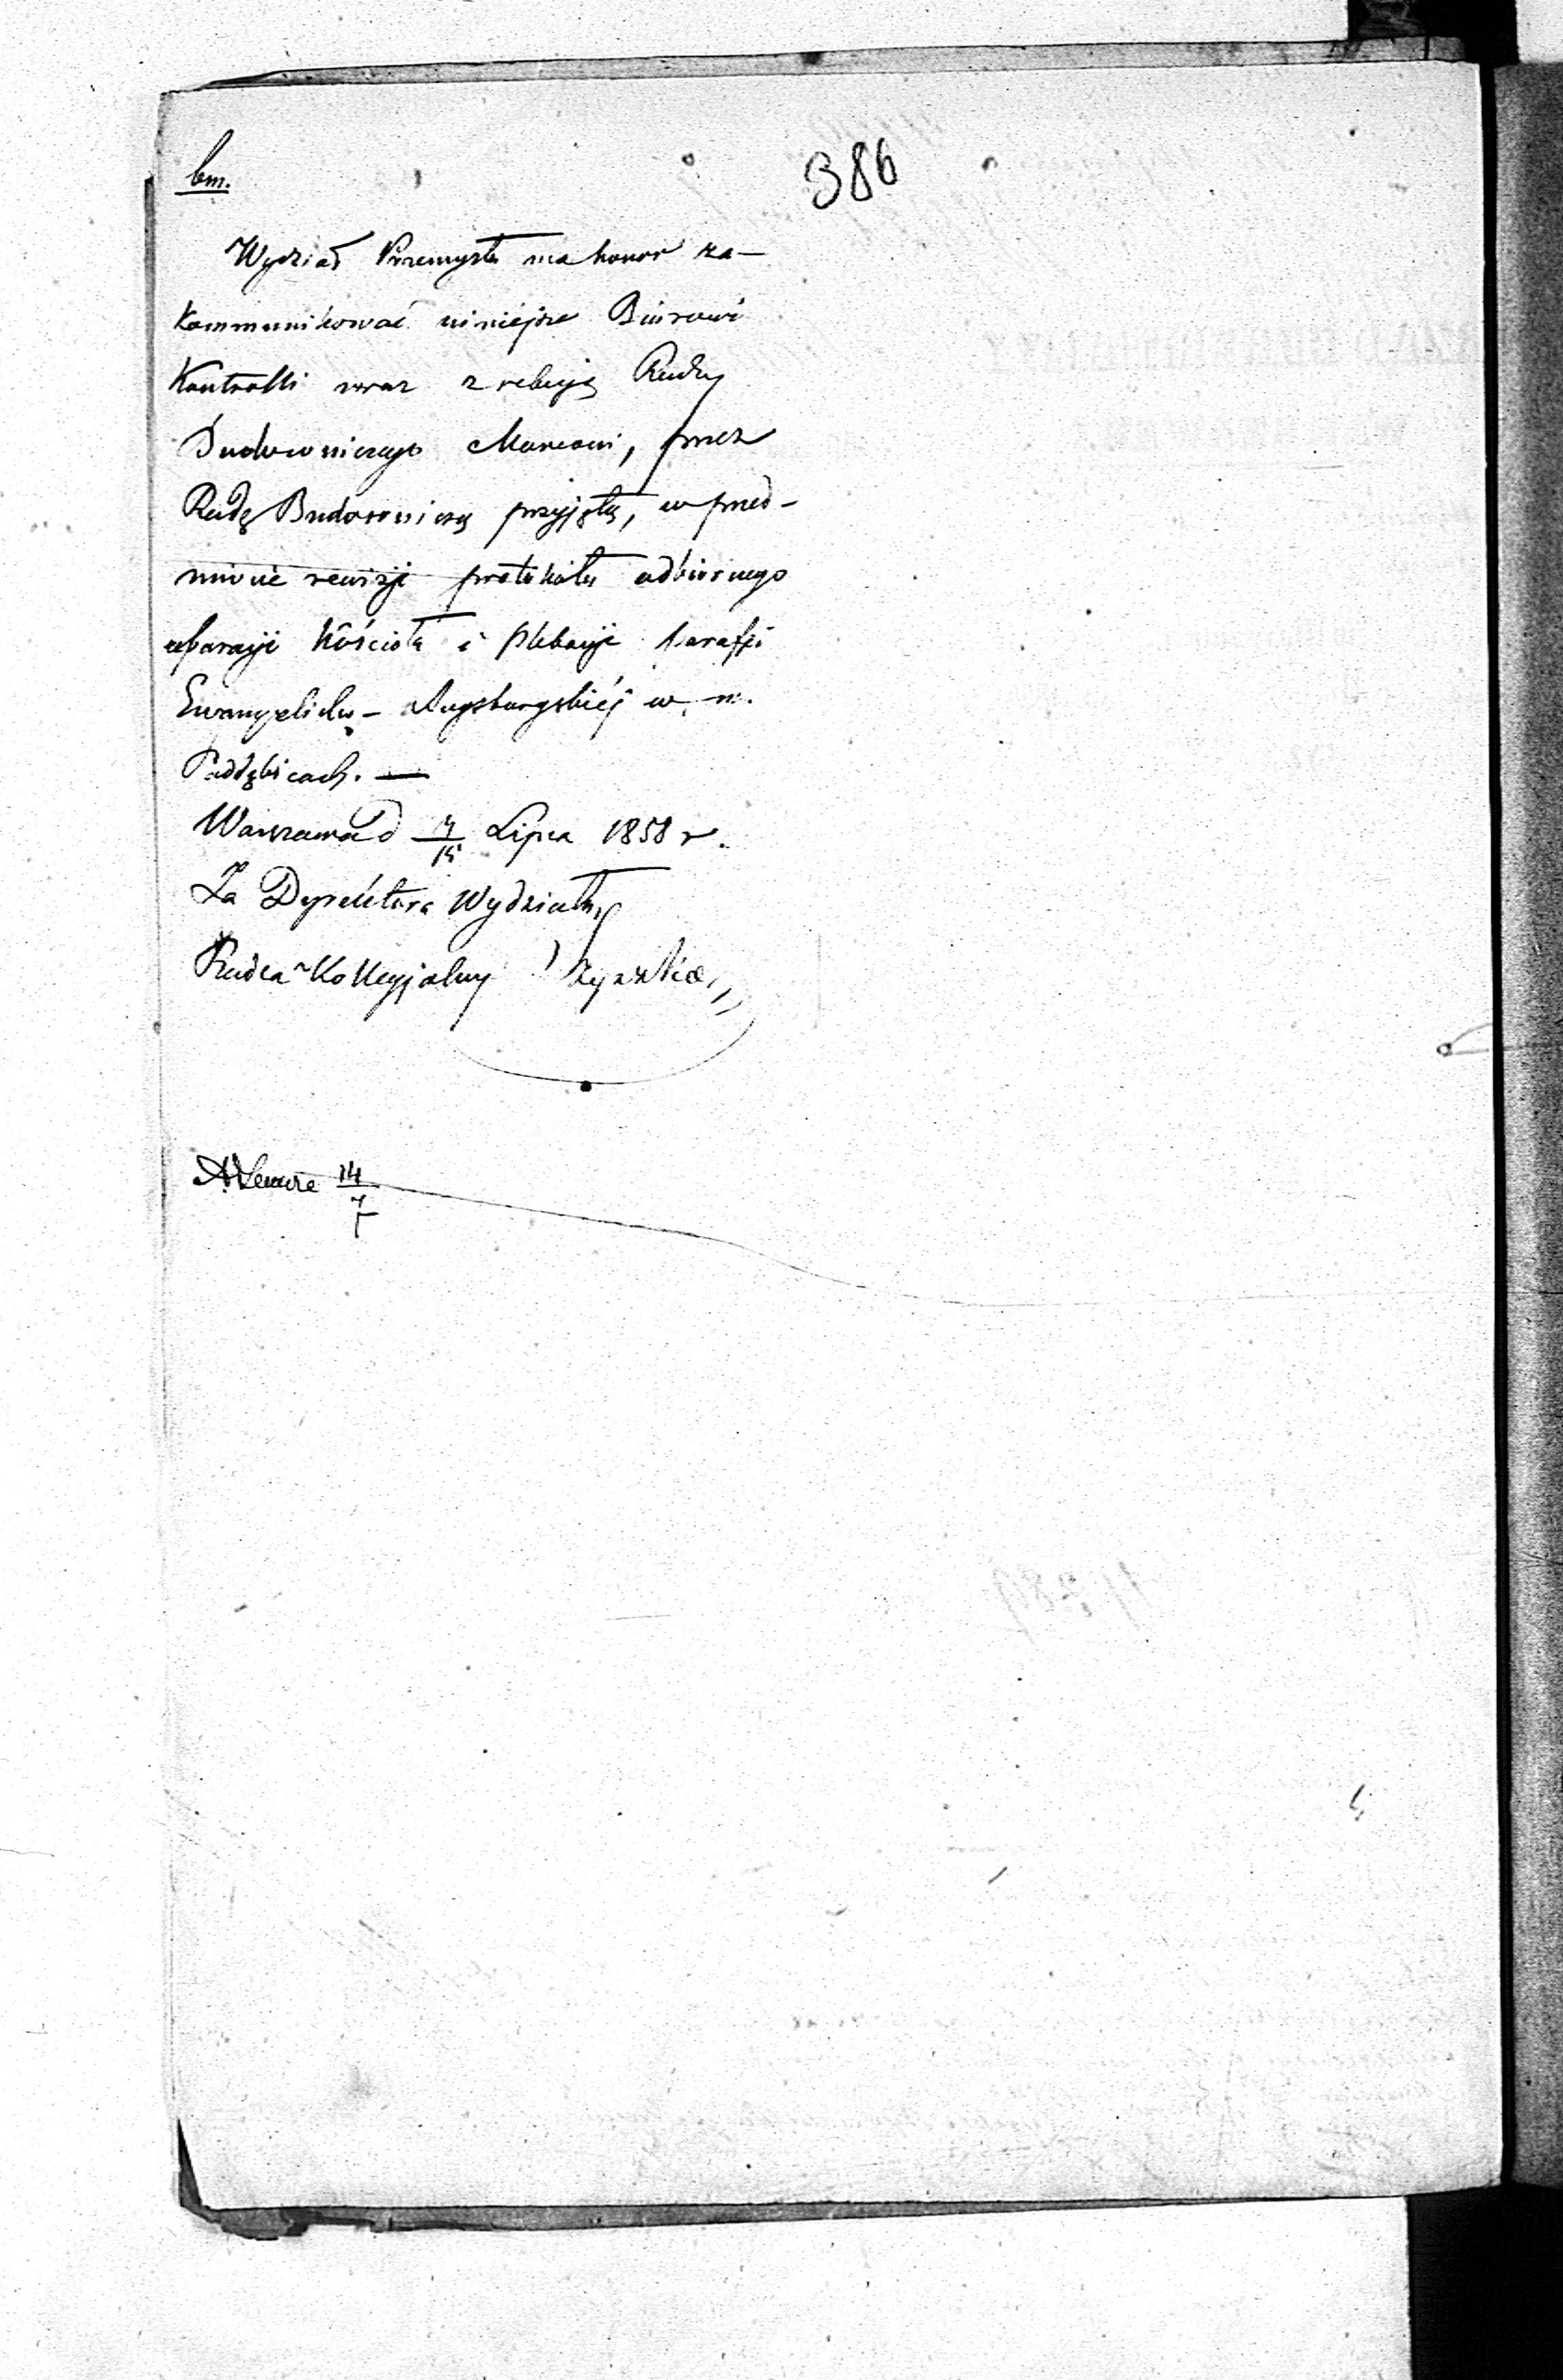 bm.
386
Wydział Przemysłu ma honor za-
kommunikować niniejsze Biurowi
Kontrolli wraz z relacją Radcy
Budowniczego Marconi, przez
Radę Budowniczą przyjętą, w przed-
miocie rewizji protokółu odbiornego
reparacji Kościoła i plebanji parafji
Ewangelicko-Augsburgskiéj w m.
Poddębicach. —
Warszawa d 3/15 Lipca 1858 r.
Za Dyrektora Wydziału
Radca Kollegjalny
14/7